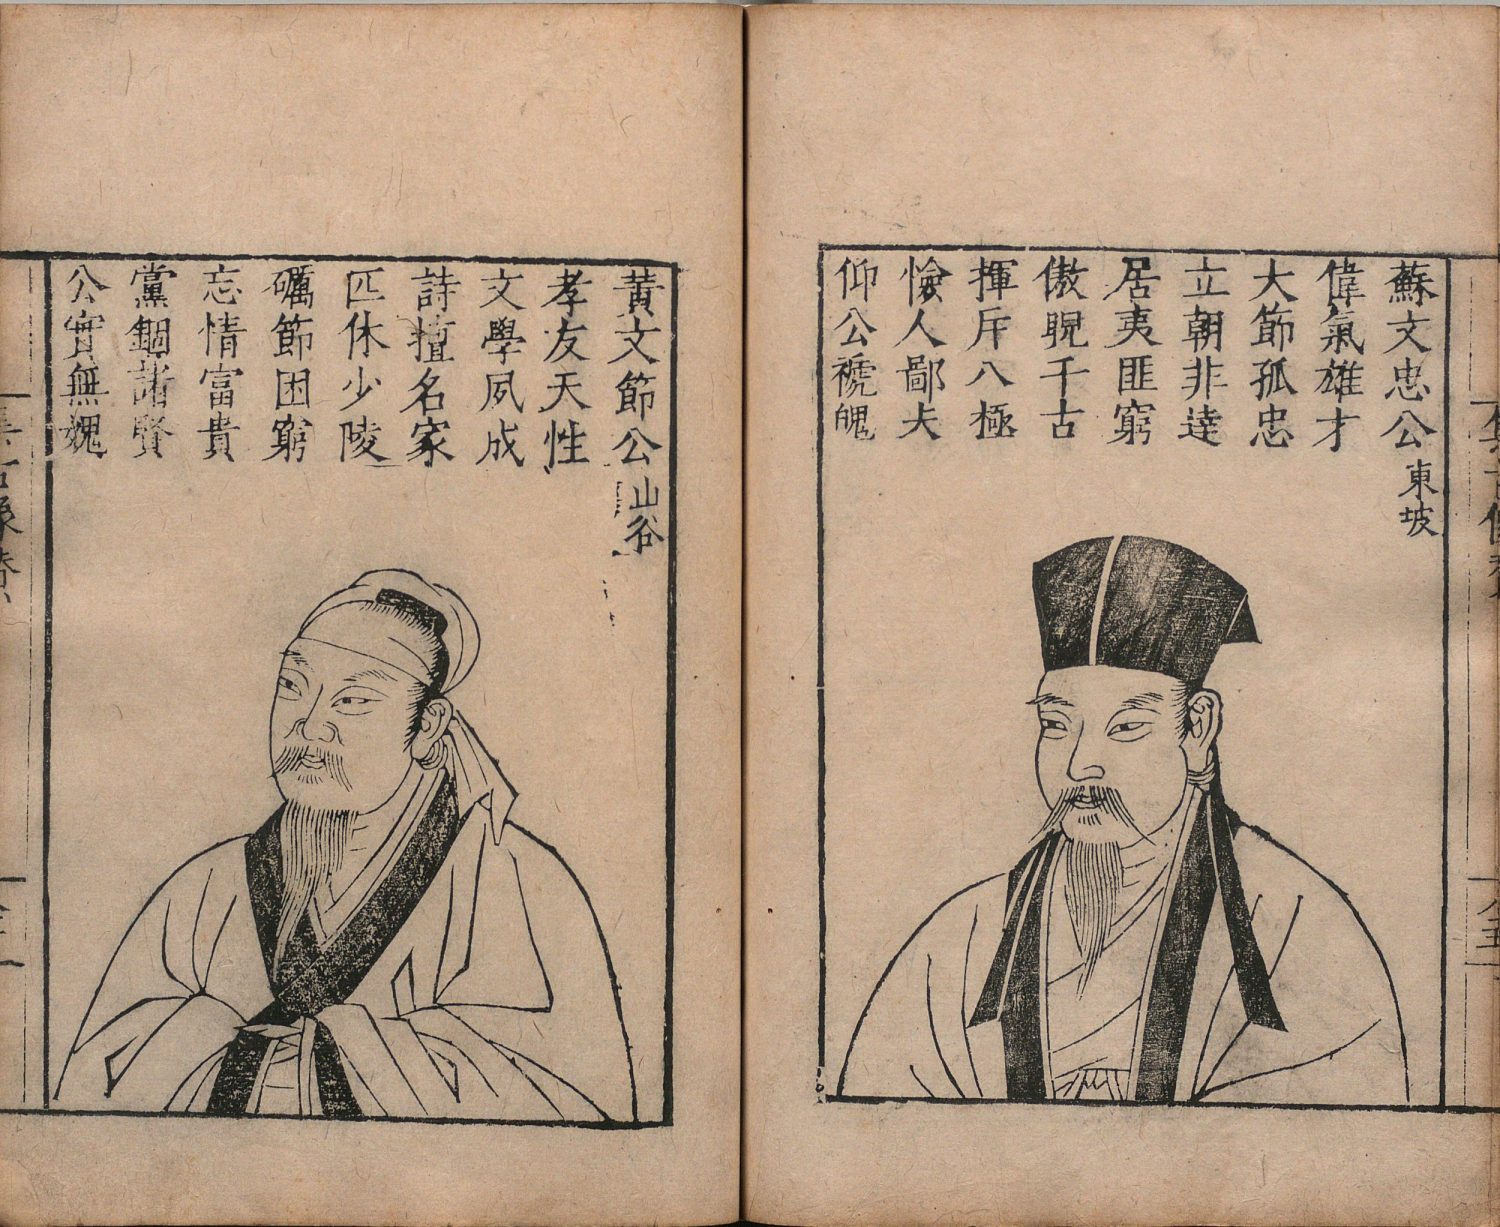 蘇文忠公東坡
偉氣雄才
大節孤忠
立朝非達
居夷匪窮
傲睨千古
揮斥八極
憸人鄙夫
仰公褫魄
黃文節公山谷
孝友天性
文學夙成
詩擅名家
匹休少陵
礪節困窮
忘情富貴
黨錮諸賢
公實無媿